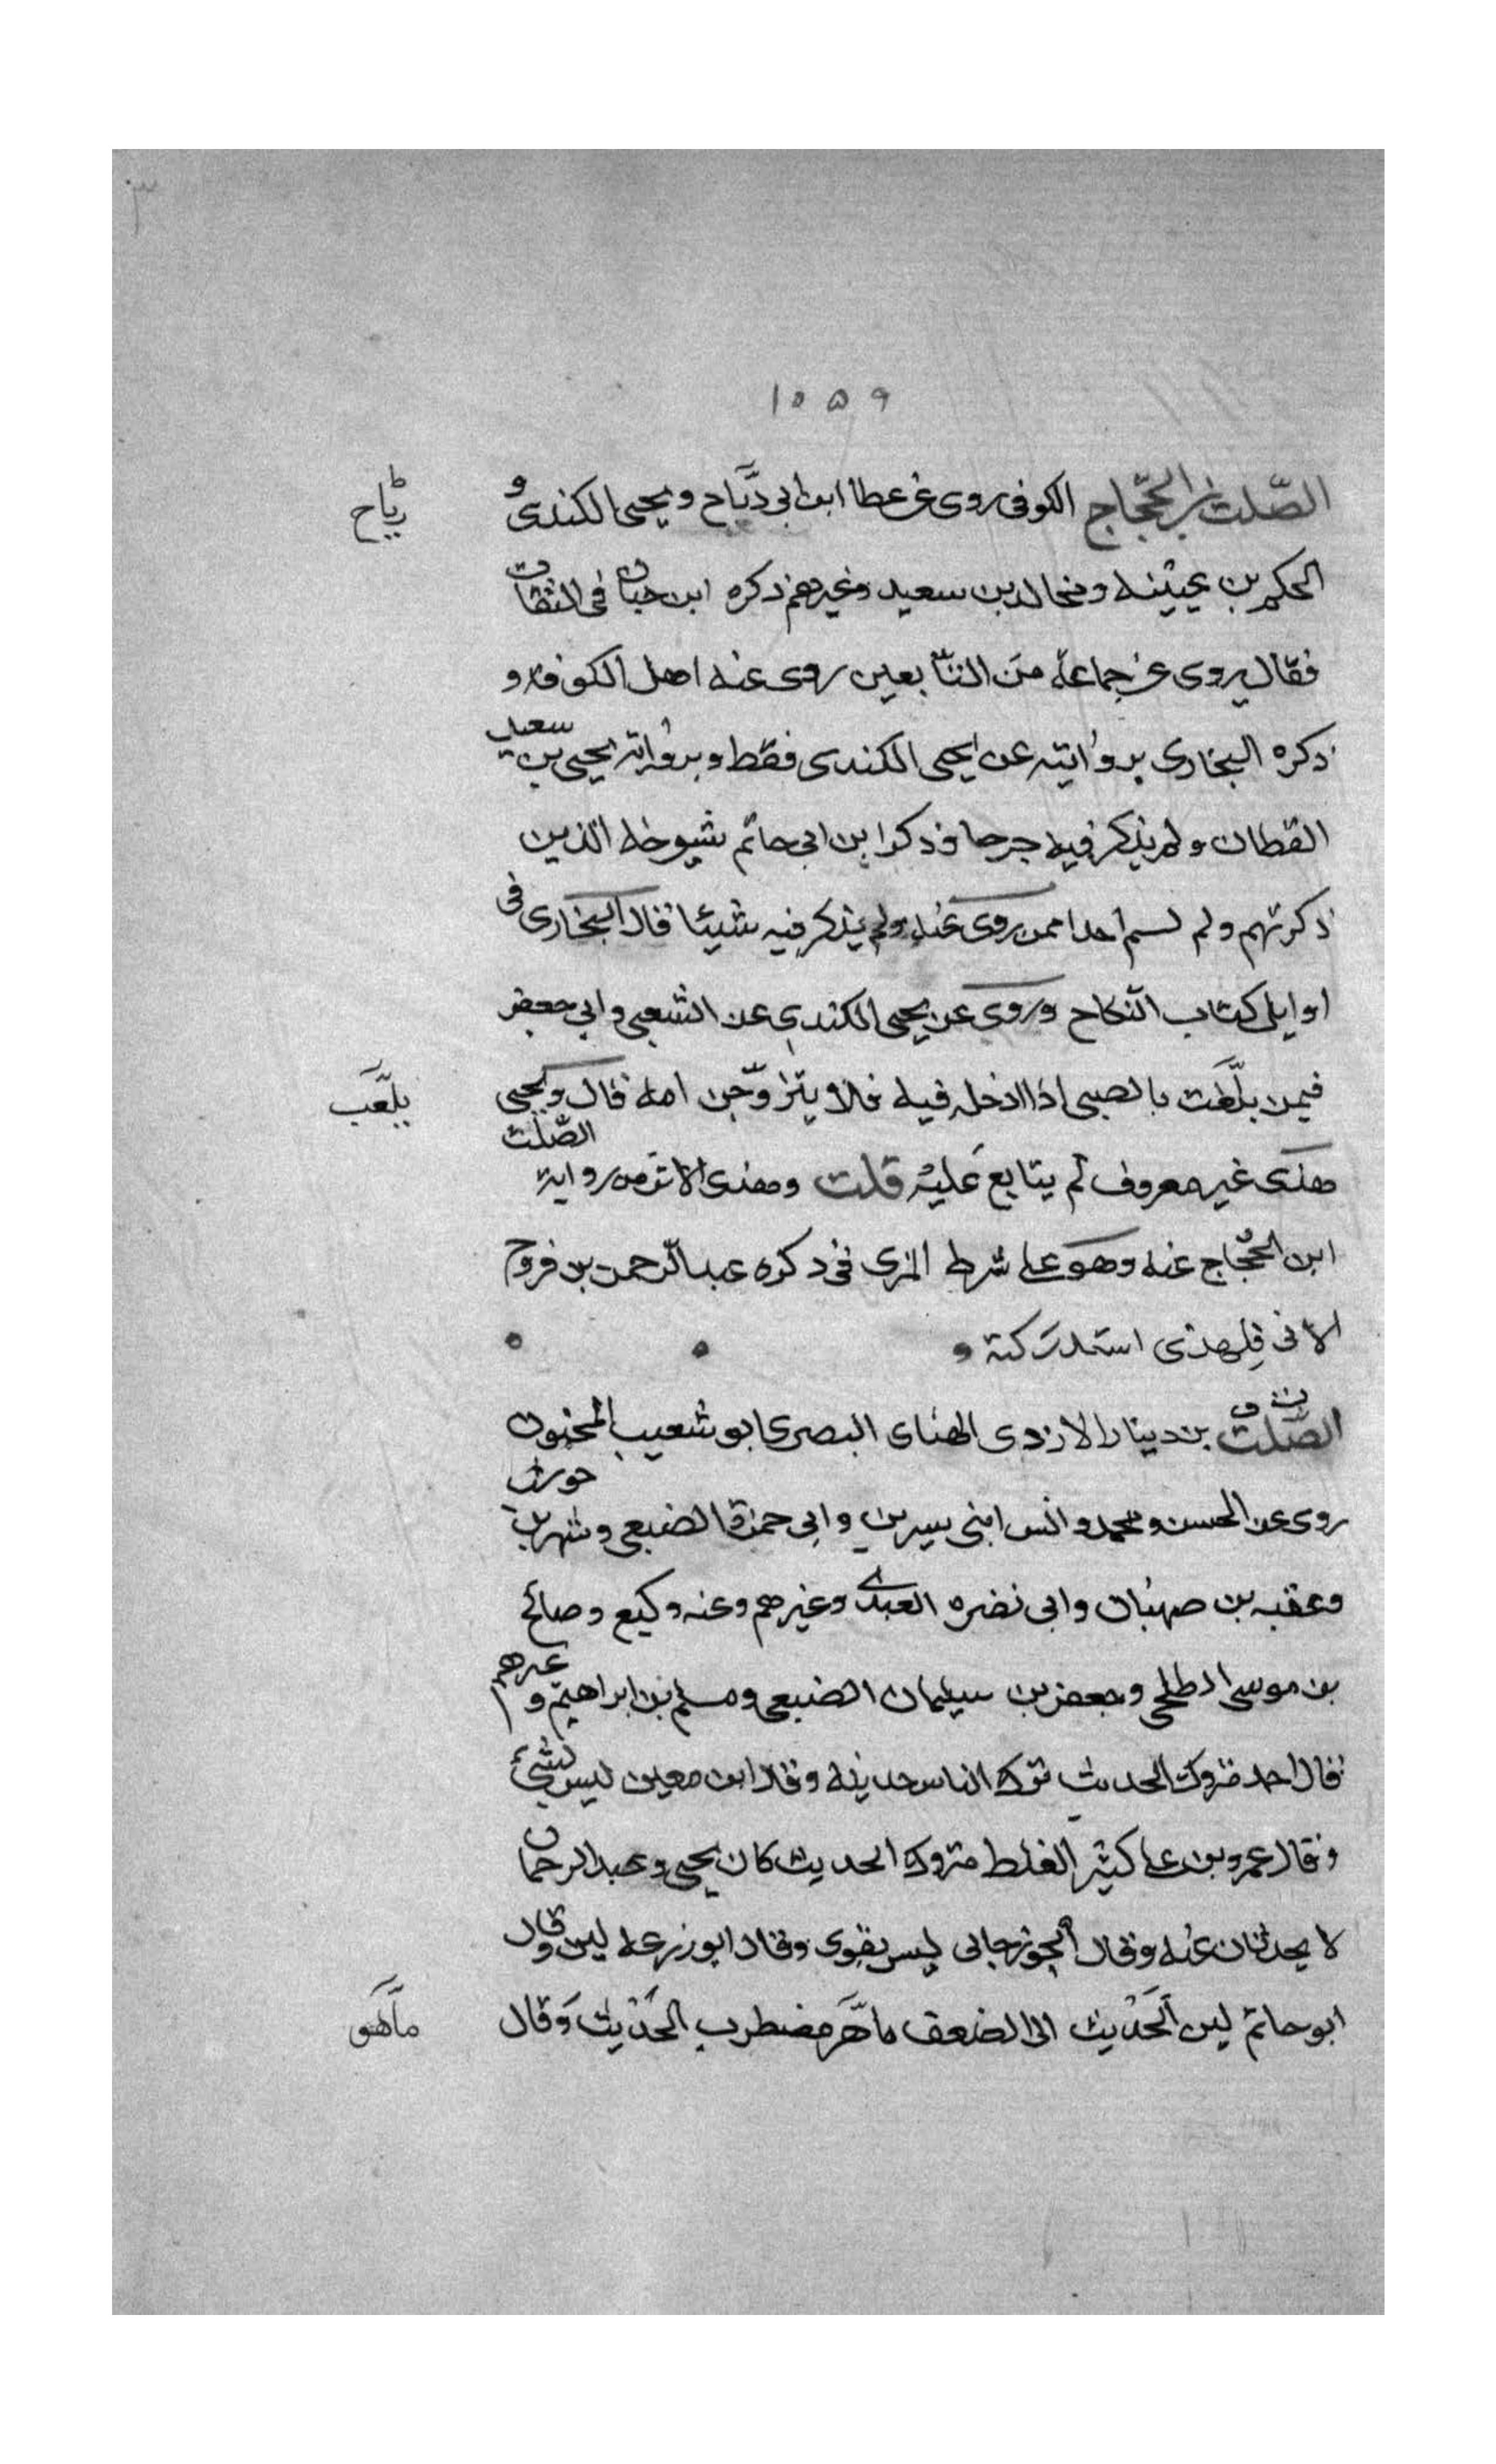 ٣
١٠٥٩
الصّلت بن الحجّاج الكوفى روى عن عطا ابن ابى رباح ويحيى الكندى و
رباح
الحكم بن عيينه ومخالد بن سعيد وغيرهم ذكره ابن حبان فى الثقات
فقال يروى عن جماعة من التابعين روى عنه اهل الكوفه و
ذكره البخارى بروايته عن يحيى الكندى فقط وبرواية يحيى بن سعيد
القطان ولم يذكر فيه جرحا وذكر ابن ابى حاتم شيوخه الذين
ذكرتهم ولم يسم احدا ممن روى عنه ولم يذكر فيه شيئا قال البخارى فى
اوايل كتاب النكاح وروى عن يحيى الكندى عن الشعبى وابى جعفر
فيمن يلعب بالصبى اذا ادخله فيه فلا يتزوّجن امه قال ويحيى
يلعب
هذى غير معروف لم يتابع عليه قلت وهذى الاثر من رواية الصّلت
ابن الحجاج عنه وهو على شرط المزى فى ذكره عبد الرحمن بن فروح
الاتى فلهذى استدركته
الصّلت بن دينار الازدى الهناى البصرى ابو شعيب المجنون
روى عن الحسن ومحمد وانس ابنى سيرين وابى حمزة الضبعى وشهر بن حوشب
وعقبه بن صهبان وابى نضره العبدى وغيرهم وعنه وكيع وصالح
بن موسى الطلحى وجعفر بن سيلمان الضبعى ومسلم بن ابراهيم وغيرهم
قال احمد متروك الحديث ترك الناس حديثه وقال ابن معين ليس بشئ
وقال عمرو بن على كثير الغلط متروك الحديث كان يحيى وعبد الرحمان
لا يحدثان عنه وقال الجوزجانى ليس بقوى وقال ابو زرعه لين وقال
ابو حاتم لين الحديث الى الضعف ماهو مضطرب الحديث وقال
ماهو